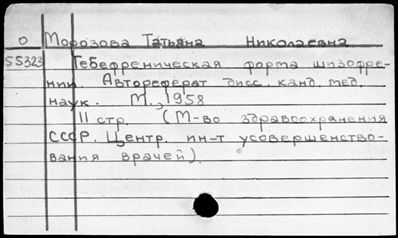 О Морозова Татьяна Николаевна
55323 Гебефреническая форма шизофре-
нии. Автореферат дисс. канд. мед.
наук. М., 1958
11 стр. (М-во здравоохранения
СССР. Центр. ин-т усовершенство-
вания врачей).